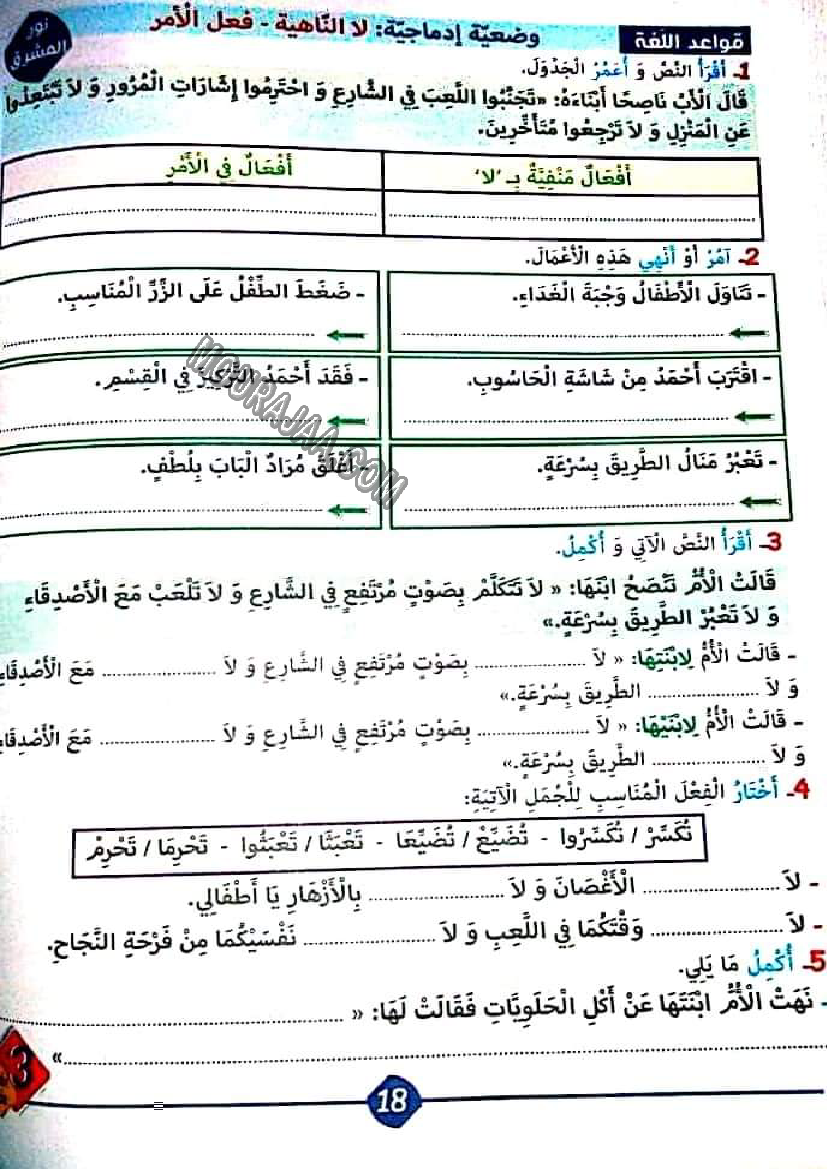 نور المشرق
قواعد اللغة
وضعيّة إدماجيّة: لا النّاهية - فعل الأمر
1ـ أَقْرَأُ النَّصَّ وَ أُعَمِّرُ الْجَدْوَلَ.
قَالَ الْأَبُ نَاصِحًا أَبْنَاءَهُ: «تَجَنَّبُوا اللَّعِبَ فِي الشَّارِعِ وَ احْتَرِمُوا إِشَارَاتِ الْمُرُورِ وَ لاَ تَبْتَعِدُوا
عَنِ الْمَنْزِلِ وَ لاَ تَرْجِعُوا مُتَأَخِّرِينَ.
أَفْعَالٌ مَنْفِيَّةٌ بِـ 'لا' أَفْعَالٌ فِي الْأَمْرِ
2ـ آمُرُ أَوْ أَنْهِي هَذِهِ الْأَعْمَالَ.
- تَنَاوَلَ الْأَطْفَالُ وَجْبَةَ الْغَدَاءِ. - ضَغَطَ الطِّفْلُ عَلَى الزِّرِّ الْمُنَاسِبِ.
- اقْتَرَبَ أَحْمَدُ مِنْ شَاشَةِ الْحَاسُوبِ. - فَقَدَ أَحْمَدُ التَّرْكِيزَ فِي الْقِسْمِ.
- تَعْبُرُ مَنَالُ الطَّرِيقَ بِسُرْعَةٍ. - أَغْلَقَ مُرَادُ الْبَابَ بِلُطْفٍ.
MOURAJAA.COM
3ـ أَقْرَأُ النَّصَّ الْآتِي وَ أُكْمِلُ.
قَالَتْ الْأُمُّ تَنْصَحُ ابْنَهَا: « لاَ تَتَكَلَّمْ بِصَوْتٍ مُرْتَفِعٍ فِي الشَّارِعِ وَ لاَ تَلْعَبْ مَعَ الْأَصْدِقَاءِ
وَ لاَ تَعْبُرْ الطَّرِيقَ بِسُرْعَةٍ.»
- قَالَتْ الْأُمُّ لِابْنَتِهَا: « لاَ .................... بِصَوْتٍ مُرْتَفِعٍ فِي الشَّارِعِ وَ لاَ .................... مَعَ الْأَصْدِقَاءِ
وَ لاَ .................... الطَّرِيقَ بِسُرْعَةٍ.»
- قَالَتْ الْأُمُّ لِابْنَيْهَا: « لاَ .................... بِصَوْتٍ مُرْتَفِعٍ فِي الشَّارِعِ وَ لاَ .................... مَعَ الْأَصْدِقَاءِ
وَ لاَ .................... الطَّرِيقَ بِسُرْعَةٍ.»
4ـ أَخْتَارُ الْفِعْلَ الْمُنَاسِبِ لِلْجُمَلِ الْآتِيَةِ:
تُكَسِّرْ / تُكَسِّرُوا - تُضَيِّعْ / تُضَيِّعَا - تَعْبَثَا / تَعْبَثُوا - تَحْرِمَا / تَحْرِمْ
- لاَ .................... الْأَغْصَانَ وَ لاَ .................... بِالْأَزْهَارِ يَا أَطْفَالِي.
- لاَ .................... وَقْتَكُمَا فِي اللَّعِبِ وَ لاَ .................... نَفْسَيْكُمَا مِنْ فَرْحَةِ النَّجَاحِ.
5ـ أُكْمِلُ مَا يَلِي.
- نَهَتْ الْأُمُّ ابْنَتَهَا عَنْ أَكْلِ الْحَلَوِيَّاتِ فَقَالَتْ لَهَا: « ....................
.................... »
3
18